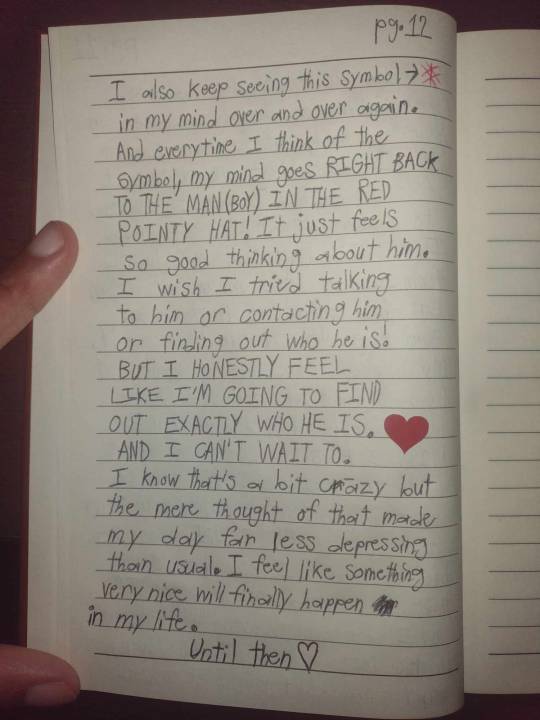 pg.12
I also keep seeing this symbol→
in my mind over and over again.
And everytime I think of the
symbol, my mind goes RIGHT BACK
TO THE MAN(BOY) IN THE RED
POINTY HAT! It just feels
so good thinking about him.
I wish I tried talking
to him or contacting him
or finding out who he is!
BUT I HONESTLY FEEL
LIKE I'M GOING TO FIND
OUT EXACTLY WHO HE IS.
AND I CAN'T WAIT TO.
I know that's a bit crazy but
the mere thought of that made
my day far less depressing
than usual. I feel like something
very nice will finally happen
in my life.
Until then ♡